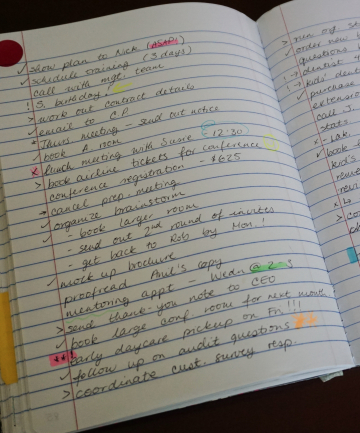 ✓ show plan to Nick (ASAP!)
✓ schedule training (3 days)
call with mgt. team
! S. birthday!
> work out contract details
✓ email to C.P.
* Thurs meeting - send out notice
✓ book A. mon
x lunch meeting with Susie (12:30)
> book airline tickets for conference
conference registration - $625
* cancel prep meeting
✓ organize brainstorm
✓ - book larger room
- send out 2nd round of invites
- get back to Rob by Mon.!
✓ mock up brochure
proofread Paul's copy
mentoring appt - Wedn @
> send thank-you note to CEO
✓ book large conf. room for next month
**! early daycare pickup on Fri!!!
✓ follow up on audit questions
> coordinate cust. survey resp.
> run
✓ order new
questions
! → dentist
! → kids' den
✓ purchase
extension
call S.
stats
✓ book
kid's